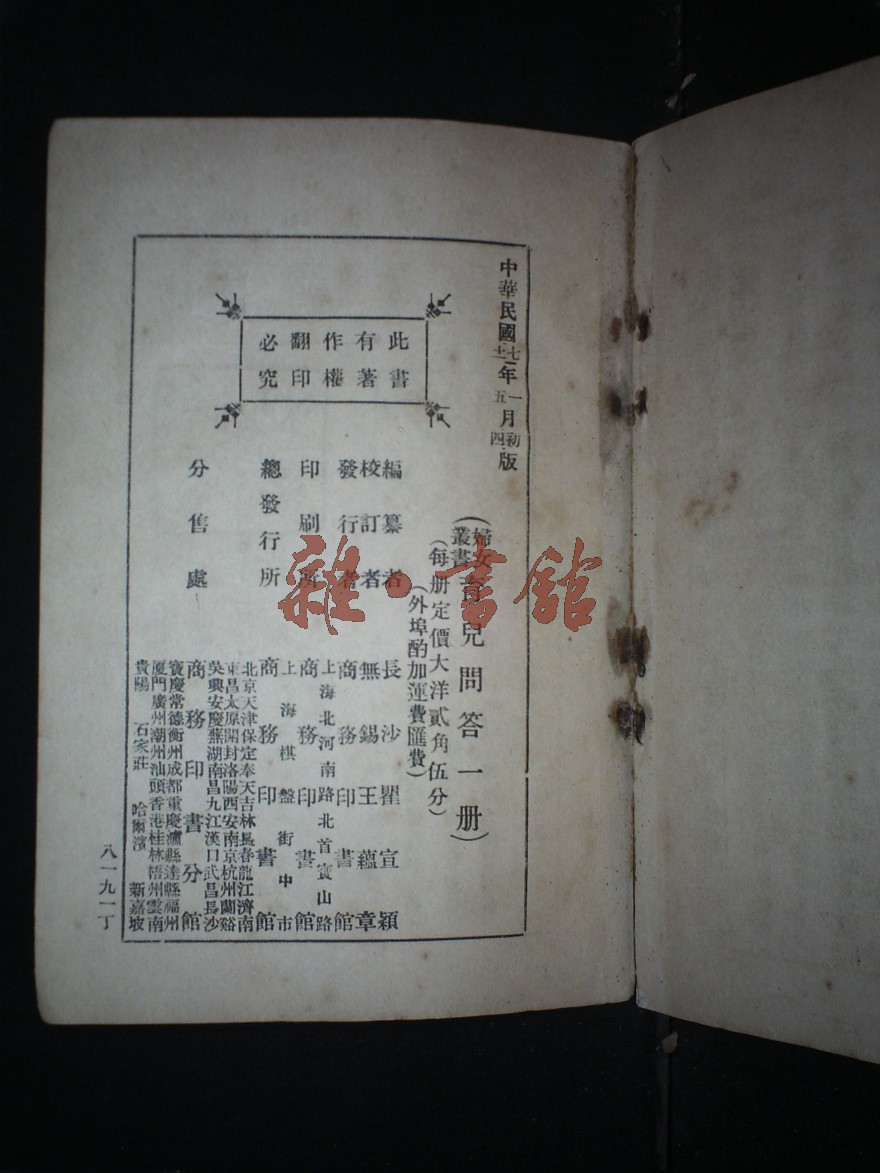 中華民國七十一年一五月初四版
(婦女叢書育兒問答一册)
(每册定價大洋貳角伍分)
(外埠酌加運費匯費)
此書
有著
作權
翻印
必究
編纂者 長沙瞿宣穎
校訂者 無錫王蘊章
發行者 商務印書館
印刷所 上海北河南路北首寶山路
商務印書館
總發行所 上海棋盤街中市
商務印書館
分售處 北京天津保定奉天吉林長春龍江濟南
東昌太原開封洛陽西安南京杭州蘭谿
吳興安慶蕪湖南昌九江漢口武昌長沙
商務印書分館
寶慶常德衡州成都重慶瀘縣達縣福州
廈門廣州潮州汕頭香港桂林梧州雲南
貴陽 石家莊 哈爾濱 新嘉坡
八一九一丁
雜·書館